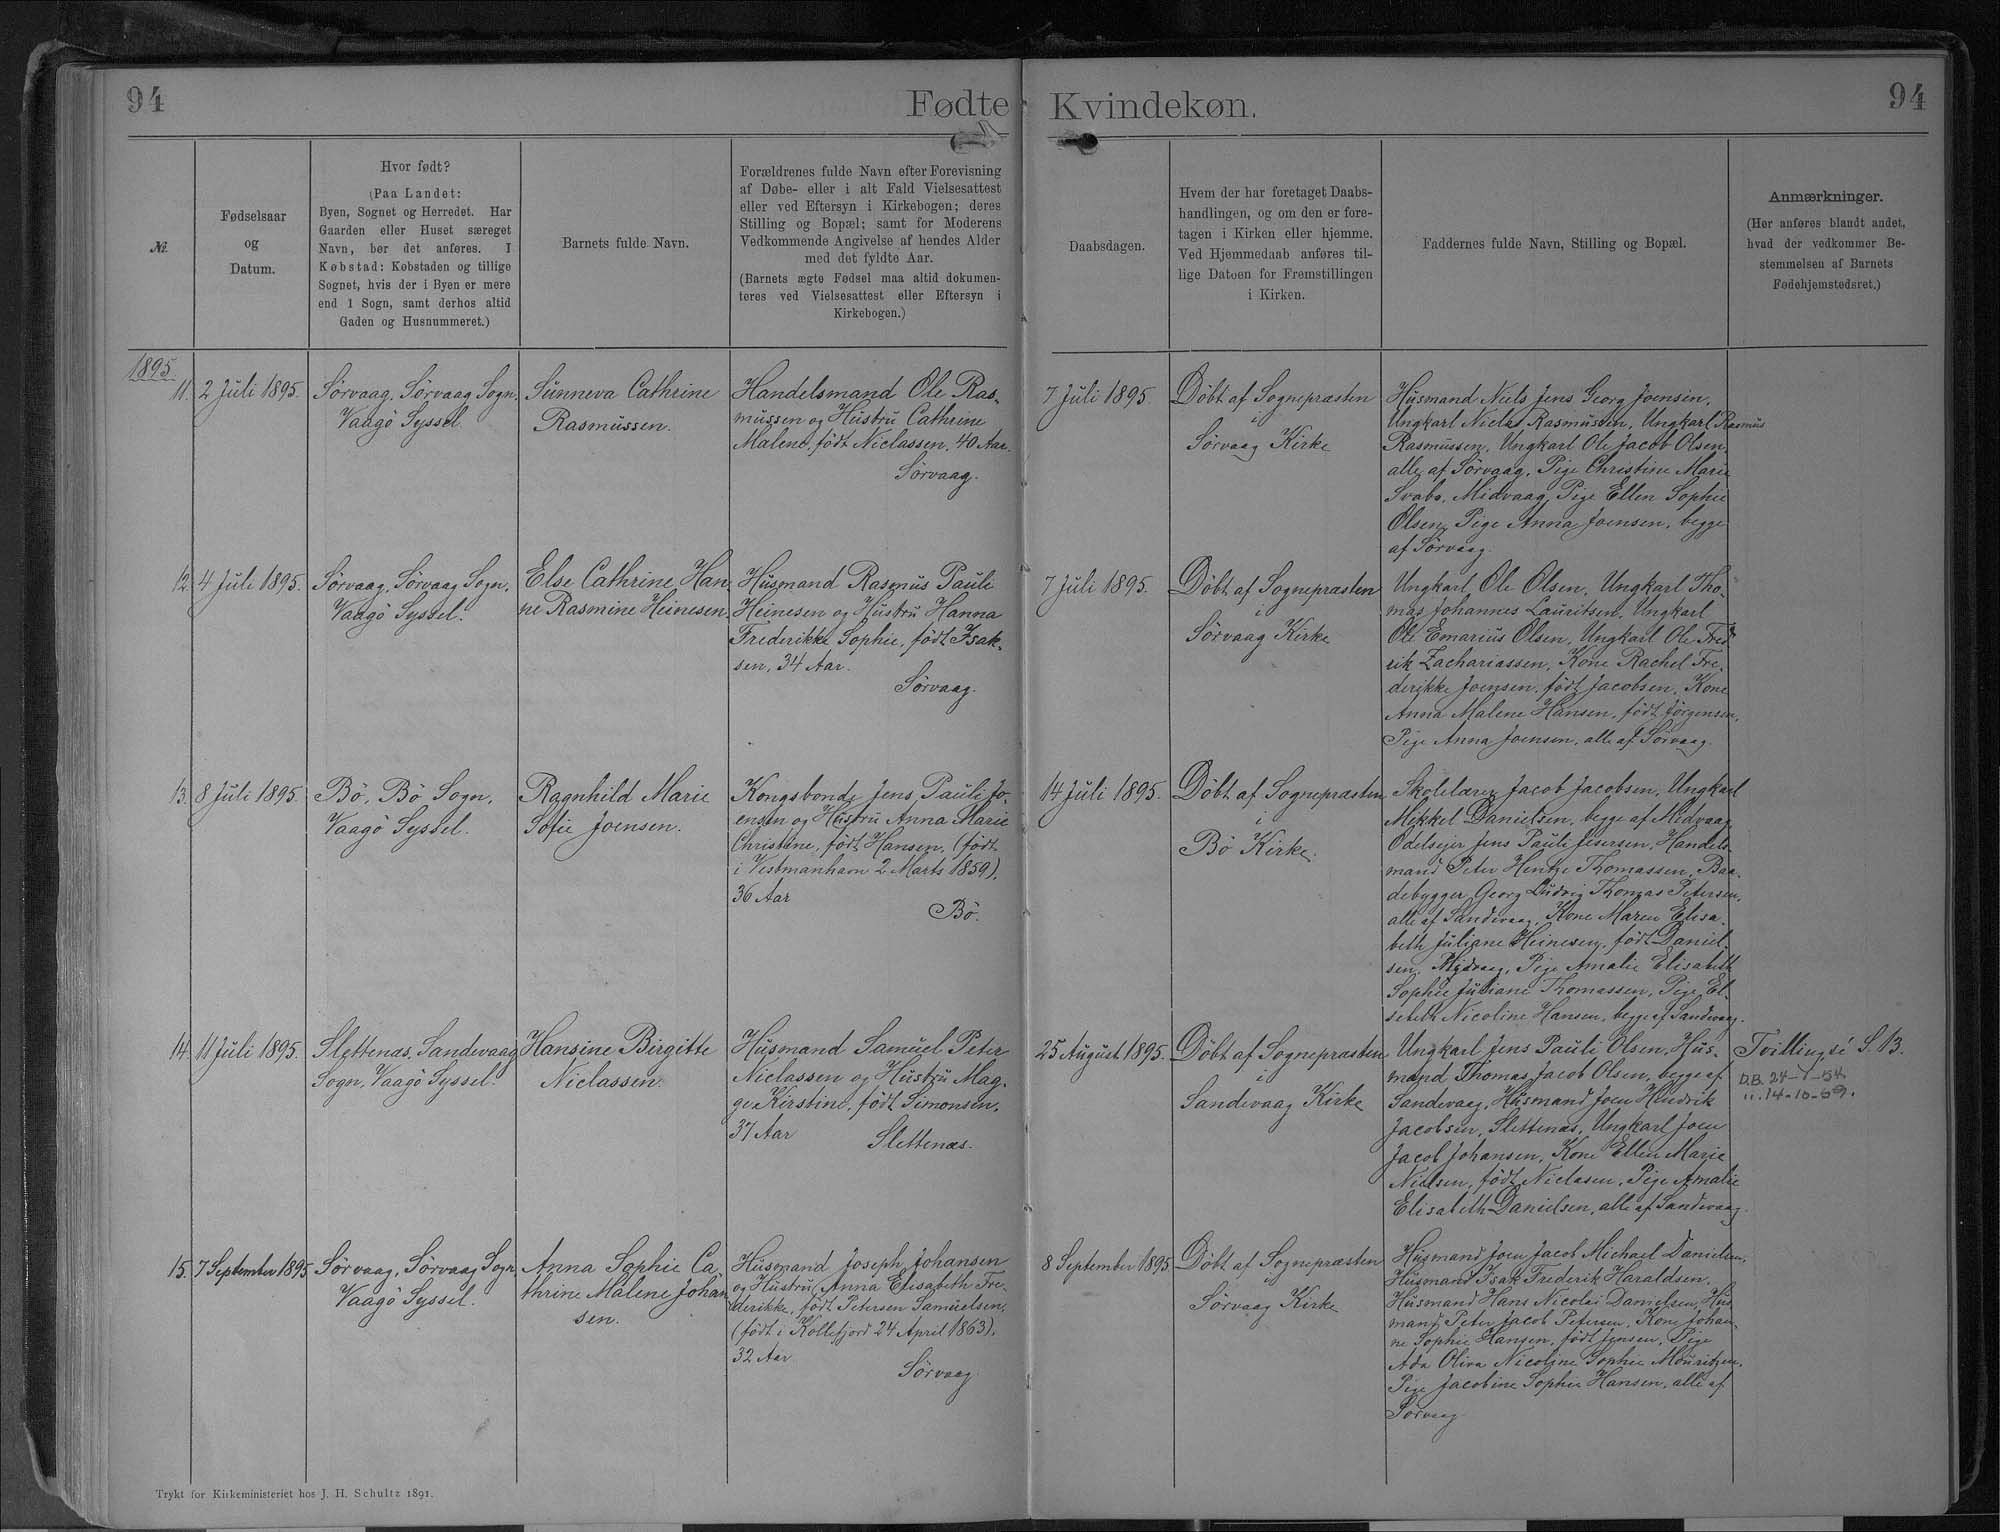 94
Fødte
Kvindekøn.
94
№.
Fødselsaar
og
Datum.
Hvor født?
(Paa Landet:
Byen, Sognet og Herredet. Har
Gaarden eller Huset særeget
Navn, bør det anføres. I
Købstad: Købstaden og tillige
Sognet, hvis der i Byen er mere
end 1 Sogn, samt derhos altid
Gaden og Husnummeret.)
Barnets fulde Navn.
Forældrenes fulde Navn efter Forevisning
af Døbe- eller i alt Fald Vielsesattest
eller ved Eftersyn i Kirkebogen; deres
Stilling og Bopæl; samt for Moderens
Vedkommende Angivelse af hendes Alder
med det fyldte Aar.
(Barnets ægte Fødsel maa altid dokumen-
teres ved Vielsesattest eller Eftersyn i
Kirkebogen.)
Daabsdagen.
Hvem der har foretaget Daabs-
handlingen, og om den er fore-
tagen i Kirken eller hjemme.
Ved Hjemmedaab anføres til-
lige Datoen for Fremstillingen
i Kirken.
Faddernes fulde Navn, Stilling og Bopæl.
Anmærkninger.
(Her anføres blandt andet,
hvad der vedkommer Be-
stemmelsen af Barnets
Fødehjemstedsret.)
1895.
11.
2 Juli 1895.
Sørvaag, Sørvaag Sogn,
Vaagö Syssel.
Sunneva Cathrine
Rasmussen.
Handelsmand Ole Ras-
mussen og Hustru Cathrine
Malene, født Niclassen, 40 Aar.
Sørvaag.
7 Juli 1895.
Döbt af Sognepræsten
i
Sørvaag Kirke
Husmand Niels Jens Georg Joensen,
Ungkarl Niclas Rasmussen, Ungkarl Rasmus
Rasmussen, Ungkarl Ole Jacob Olsen,
alle af Sörvaag, Pige Christine Marie
Svabo, Midvaag, Pige Ellen Sophie
Olsen, Pige Anna Joensen, begge
af Sörvaag.
12.
4 Juli 1895.
Sørvaag, Sørvaag Sogn,
Vaagö Syssel.
Else Cathrine Han
ne Rasmine Heinesen.
Husmand Rasmus Pauli
Heinesen og Hustru Hanna
Frederikke Sophie, født Isak-
sen, 34 Aar.
Sørvaag.
7 Juli 1895.
Döbt af Sognepræsten
i
Sørvaag Kirke
Ungkarl Ole Olsen, Ungkarl Tho-
mas Johannes Lauritsen, Ungkarl
Ole Emarius Olsen, Ungkarl Ole Fred
rik Zachariassen, Kone Rachel Fre-
derikke Joensen, født Jacobsen, Kone
Anna Malene Hansen, født Jörgensen,
Pige Anna Joensen, alle af Sörvaag.
13.
8 Juli 1895.
Bö, Bö Sogn,
Vaagö Syssel.
Ragnhild Marie
Sofie Joensen.
Kongsbonde Jens Pauli Jo-
ensen og Hustru Anna Marie
Christine, født Hansen, (født
i Vestmanhavn 2 Marts 1859),
36 Aar
Bö.
14 Juli 1895.
Döbt af Sognepræsten
i
Bö Kirke.
Skolelærer Jacob Jacobsen, Ungkarl
Mikkel Danielsen, begge af Midvaag
Odelsejer Jens Pauli Jesersen, Handels
mand Peter Hentze Thomassen, Baa-
debygger Georg Ludvig Thomas Petersen,
alle af Sandevaag, Kone Maren Elisa-
beth Juliane Heinesen, født Daniel-
sen, Midvaag, Pige Amalie Elisabeth
Sophie Juliane Thomassen, Pige El-
sebeth Nicoline Hansen, begge af Sandevaag.
14.
11 Juli 1895.
Slettenæs, Sandevaag
Sogn, Vaagö Syssel.
Hansine Birgitte
Niclassen.
Husmand Samuel Peter
Niclassen og Hustru Mag-
ge Kirstine, født Simonsen,
37 Aar
Slettenæs.
25 August 1895.
Döbt af Sognepræsten
i
Sandevaag Kirke
Ungkarl Jens Pauli Olsen, Hus-
mand Thomas Jacob Olsen, begge af
Sandevaag, Husmand Joen Hendrik
Jacobsen, Slettenæs, Ungkarl Joen
Jacob Johansen, Kone Ellen Marie
Nielsen, født Niclasen, Pige Amalie
Elisabeth Danielsen, alle af Sandevaag.
Tvilling, S. 13.
D.B. 24-1-54
". 14-10-69.
15.
7 September 1895
Sørvaag, Sørvaag Sogn,
Vaagö Syssel.
Anna Sophie Ca
thrine Malene Johan
sen.
Husmand Joseph Johansen
og Hustru Anna Elisabeth Fre-
derikke, født Petersen Samuelsen,
(født i Kollefjord 24 April 1863),
32 Aar
Sørvaag
8 September 1895
Döbt af Sognepræsten
i
Sørvaag Kirke
Husmand Joen Jacob Michael Danielsen,
Husmand Isak Frederik Haraldsen,
Husmand Hans Nicolai Danielsen, Hus
mand Peter Jacob Petersen, Kone Johan-
ne Sophie Hansen, født Jensen, Pige
Ada Oliva Nicoline Sophie Mouritzen,
Pige Jacobine Sophie Hansen, alle af
Sörvaag
Trykt for Kirkeministeriet hos J. H. Schultz 1891.